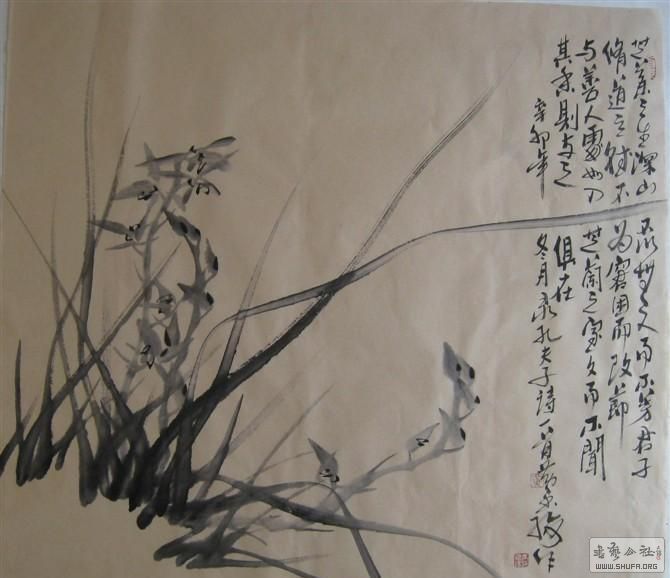 芝兰之生深山人而不芳君子
脩道立德不為窮困而改節
与善人處如入芝蘭之室久而不聞
其香則与之俱在
辛卯年冬月录孔夫子詩作
書藝公社
WWW.SHUFA.ORG